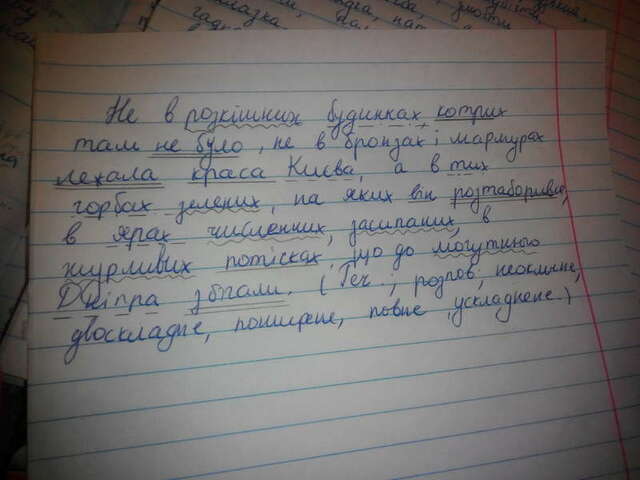 Не в розкішних будинках котрих
там не було, не в бронзах і мармурах
лежала краса Києва, а в тих
горбах зелених, на яких він розтаборився,
в ярах численних, засипаних, в
журливих потісках, що до могутнього
Дніпра збігали. (Реч.; розпов, неоклична,
двоскладне, поширене, повне, ускладнене.)